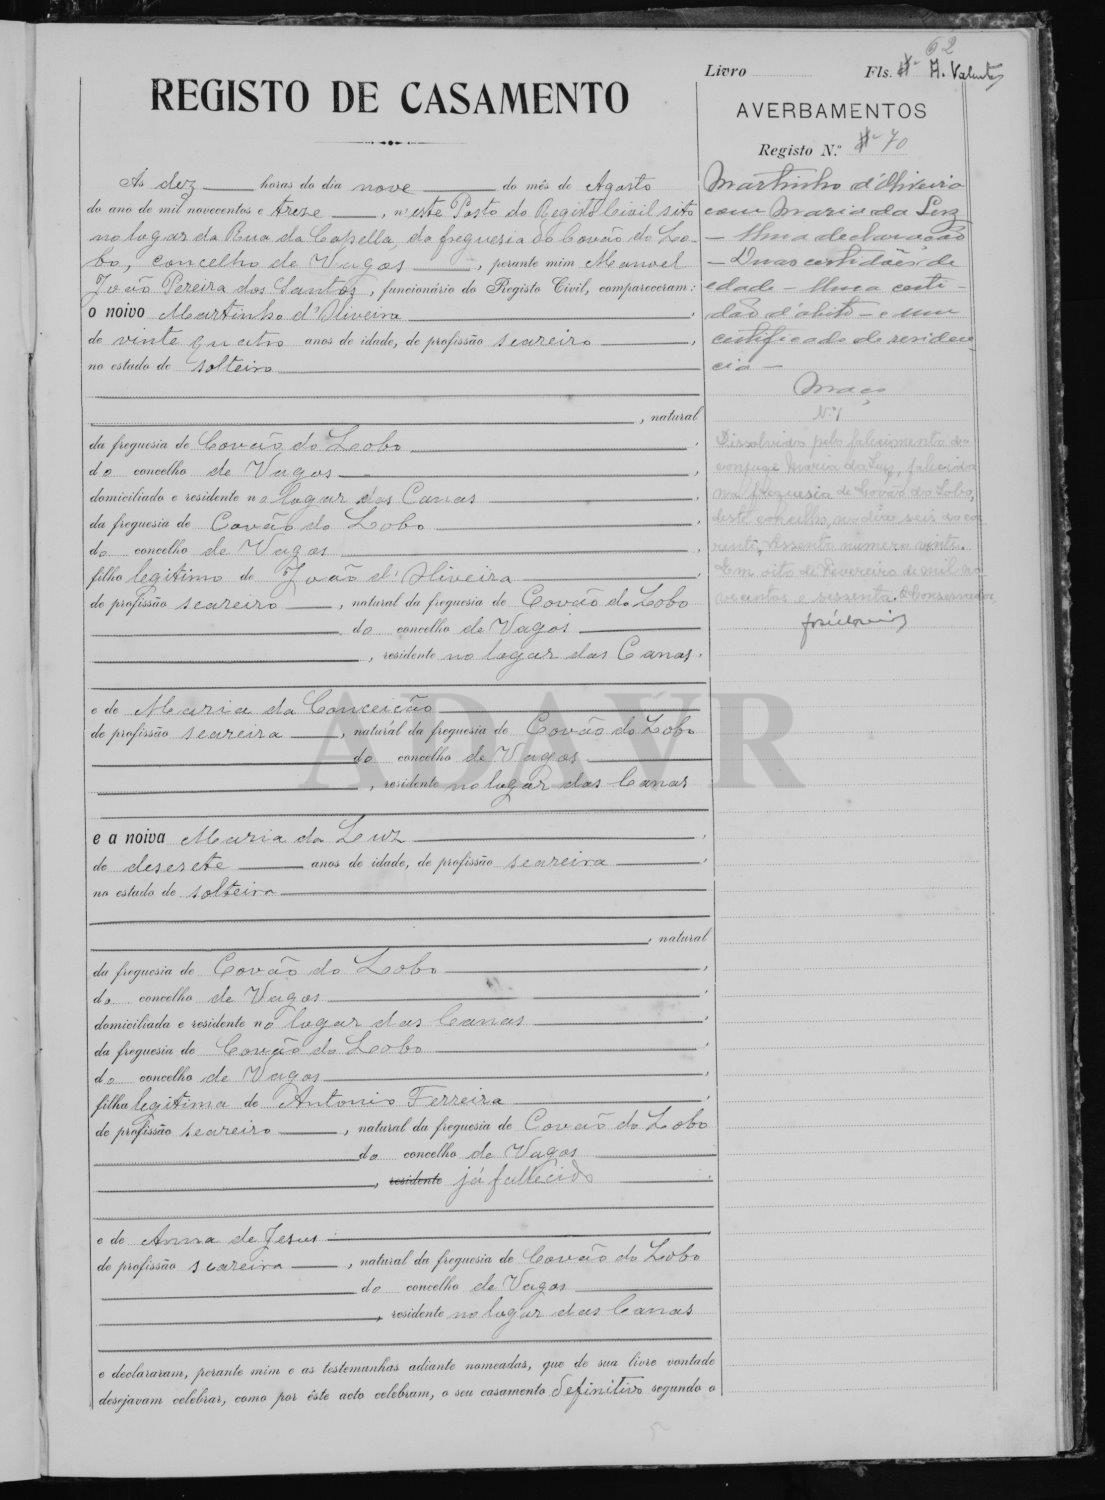 62
Livro Fls. A. Valente
REGISTO DE CASAMENTO
AVERBAMENTOS
Registo N.º 70
Ás dez horas do dia nove do mês de Agosto
do ano de mil novecentos e treze, n'este Posto do Registo Civil sito
no lugar da Rua da Capella, da freguesia do Covão do Lo-
bo, concelho de Vagos, perante mim Manoel
João Pereira dos Santos, funcionário do Registo Civil, compareceram:
o noivo Martinho d'Oliveira,
de vinte quatro anos de idade, de profissão seareiro,
no estado de solteiro
, natural
da freguesia de Covão do Lobo,
do concelho de Vagos,
domiciliado e residente no logar das Canas,
da freguesia de Covão do Lobo,
do concelho de Vagos,
filho legitimo de João d'Oliveira,
de profissão seareiro, natural da freguesia de Covão do Lobo
do concelho de Vagos
, residente no logar das Canas.
e de Maria da Conceicão
de profissão seareira, natural da freguesia de Covão do Lobo
do concelho de Vagos
, residente no logar das Canas
e a noiva Maria da Luz,
de desesete anos de idade, de profissão seareira,
no estado de solteira
, natural
da freguesia de Covão do Lobo,
do concelho de Vagos,
domiciliada e residente no logar das Canas,
da freguesia de Covão do Lobo,
do concelho de Vagos,
filha legitima de Antonio Ferreira,
de profissão seareiro, natural da freguesia de Covão do Lobo
do concelho de Vagos
, residente já fallecido.
e de Anna de Jesus
de profissão seareira, natural da freguesia de Covão do Lobo
do concelho de Vagos
, residente no logar das Canas
e declararam, perante mim e as testemunhas adiante nomeadas, que de sua livre vontade
desejavam celebrar, como por êste acto celebram, o seu casamento definitivo segundo o
Martinho d'Oliveira
com Maria da Luz
— Uma declaração
— Duas certidões de
edade — Uma certi-
dão d'obito — e um
certificado de residen-
cia —
Maço
N.º 1
Dissolvido pelo falecimento do
conjuge Maria da Luz, falecida
na freguesia de Covão do Lobo,
deste concelho, no dia seis do co
rrente, Assento número vinte.
Em oito de Fevereiro de mil no
vecentos e sessenta. O Conservador
ADAVR